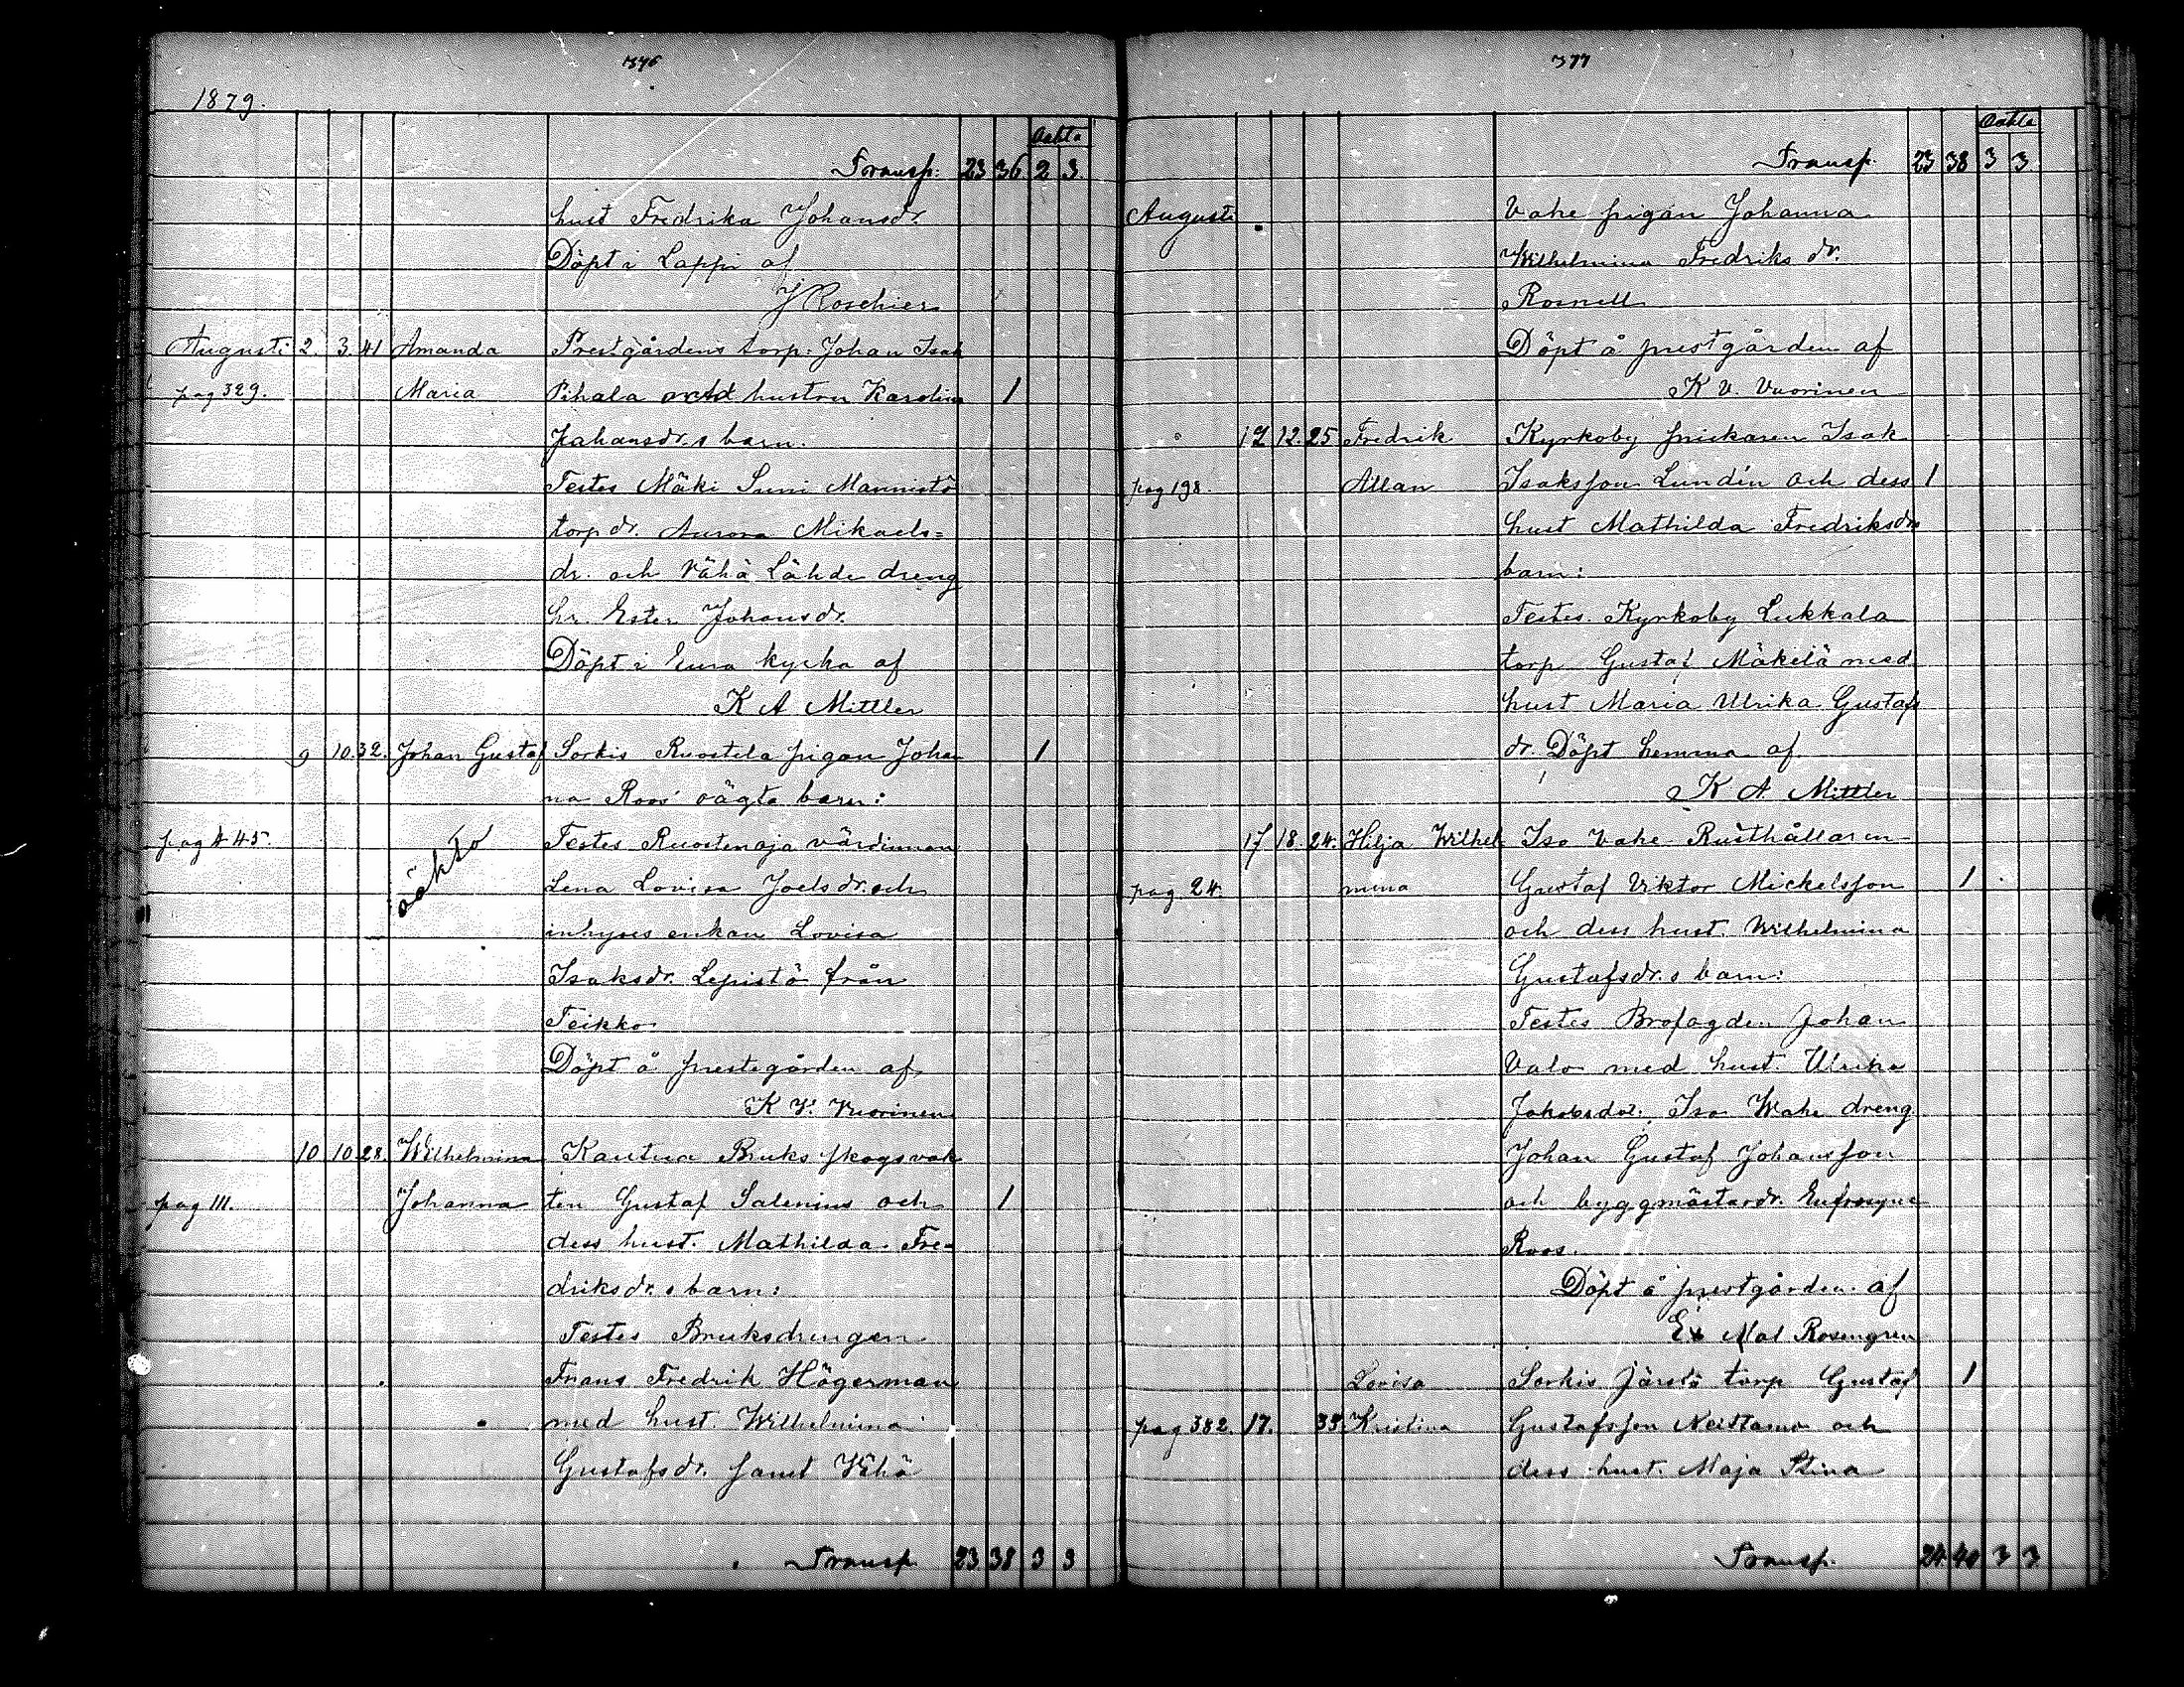 376
1879.
Oäkta
Transp. 23 36 2 3.
hust Fredrika Johansdr.
Döpt i Lappi af
J Roschier
Augusti 2. 3. 41 Amanda Prestgårdens torp. Johan Isak
pag 329. Maria Pihala hustru Karolina 1
Johansdr.s barn.
Testes Mäki Suni Mannistö
torp dr. Aurora Mikaels=
dr. och Vähä Lähde dreng
hr. Ester Johansdr.
Döpt i Eura kyrka af
K A Mittler
9 10. 32. Johan Gustaf Sorkis Ruostela pigan Johan 1
na Roos' oägta barn:
pag 445. oäkto Testes Ruostenoja värdinnan
Lena Lovisa Joelsdr. och
inhyses enkan Lovisa
Isaksdr. Lepistö från
Teikko
Döpt å prestegården af
K V. Vuorinen
10 10 28. Wilhelmina Kautua Bruks skogsvak
pag 111. Johanna ten Gustaf Salenius och 1
dess hust. Mathilda Fre-
driksdr.s barn:
Testes Bruksdrengen
Frans Fredrik Högerman
med hust. Wilhelmina
Gustafsdr. samt Vähä
Transp 23 38 3 3
377
Oäkta
Transp. 23 38 3 3.
Augusti Vahe pigan Johanna
Wilhelmina Fredriks dr.
Rosnell
Döpt å prestgården af
K V. Vuorinen
12 12. 25 Fredrik Kyrkoby snickaren Isak
pag 198. Allan Isaksson Lundén och dess 1
hust Mathilda Fredriksdrs
barn:
Testes. Kyrkoby Lukkala
torp Gustaf Mäkelä med
hust Maria Ulrika Gustafs
dr. Döpt hemma af
K A. Mittler
17 18. 24. Hilja Wilhel Iso Vahe Rusthållaren
pag. 24. mina Gustaf Viktor Mickelsson 1
och dess hust. Wilhelmina
Gustafsdr.s barn:
Testes Brofogden Johan
Valo med hust. Ulrika
Jakobsdr: Iso Wahe dreng
Johan Gustaf Johansson
och byggmästardr. Eufrosyne
Roos.
Döpt å prestgården af
Ex Mal Rosengren
Lovisa Sorkis Järstö torp Gustaf 1
pag 382. 17. 33 Kristina Gustafsson Neittamo och
dess hust. Maja Stina
Transp. 24 40 3 3